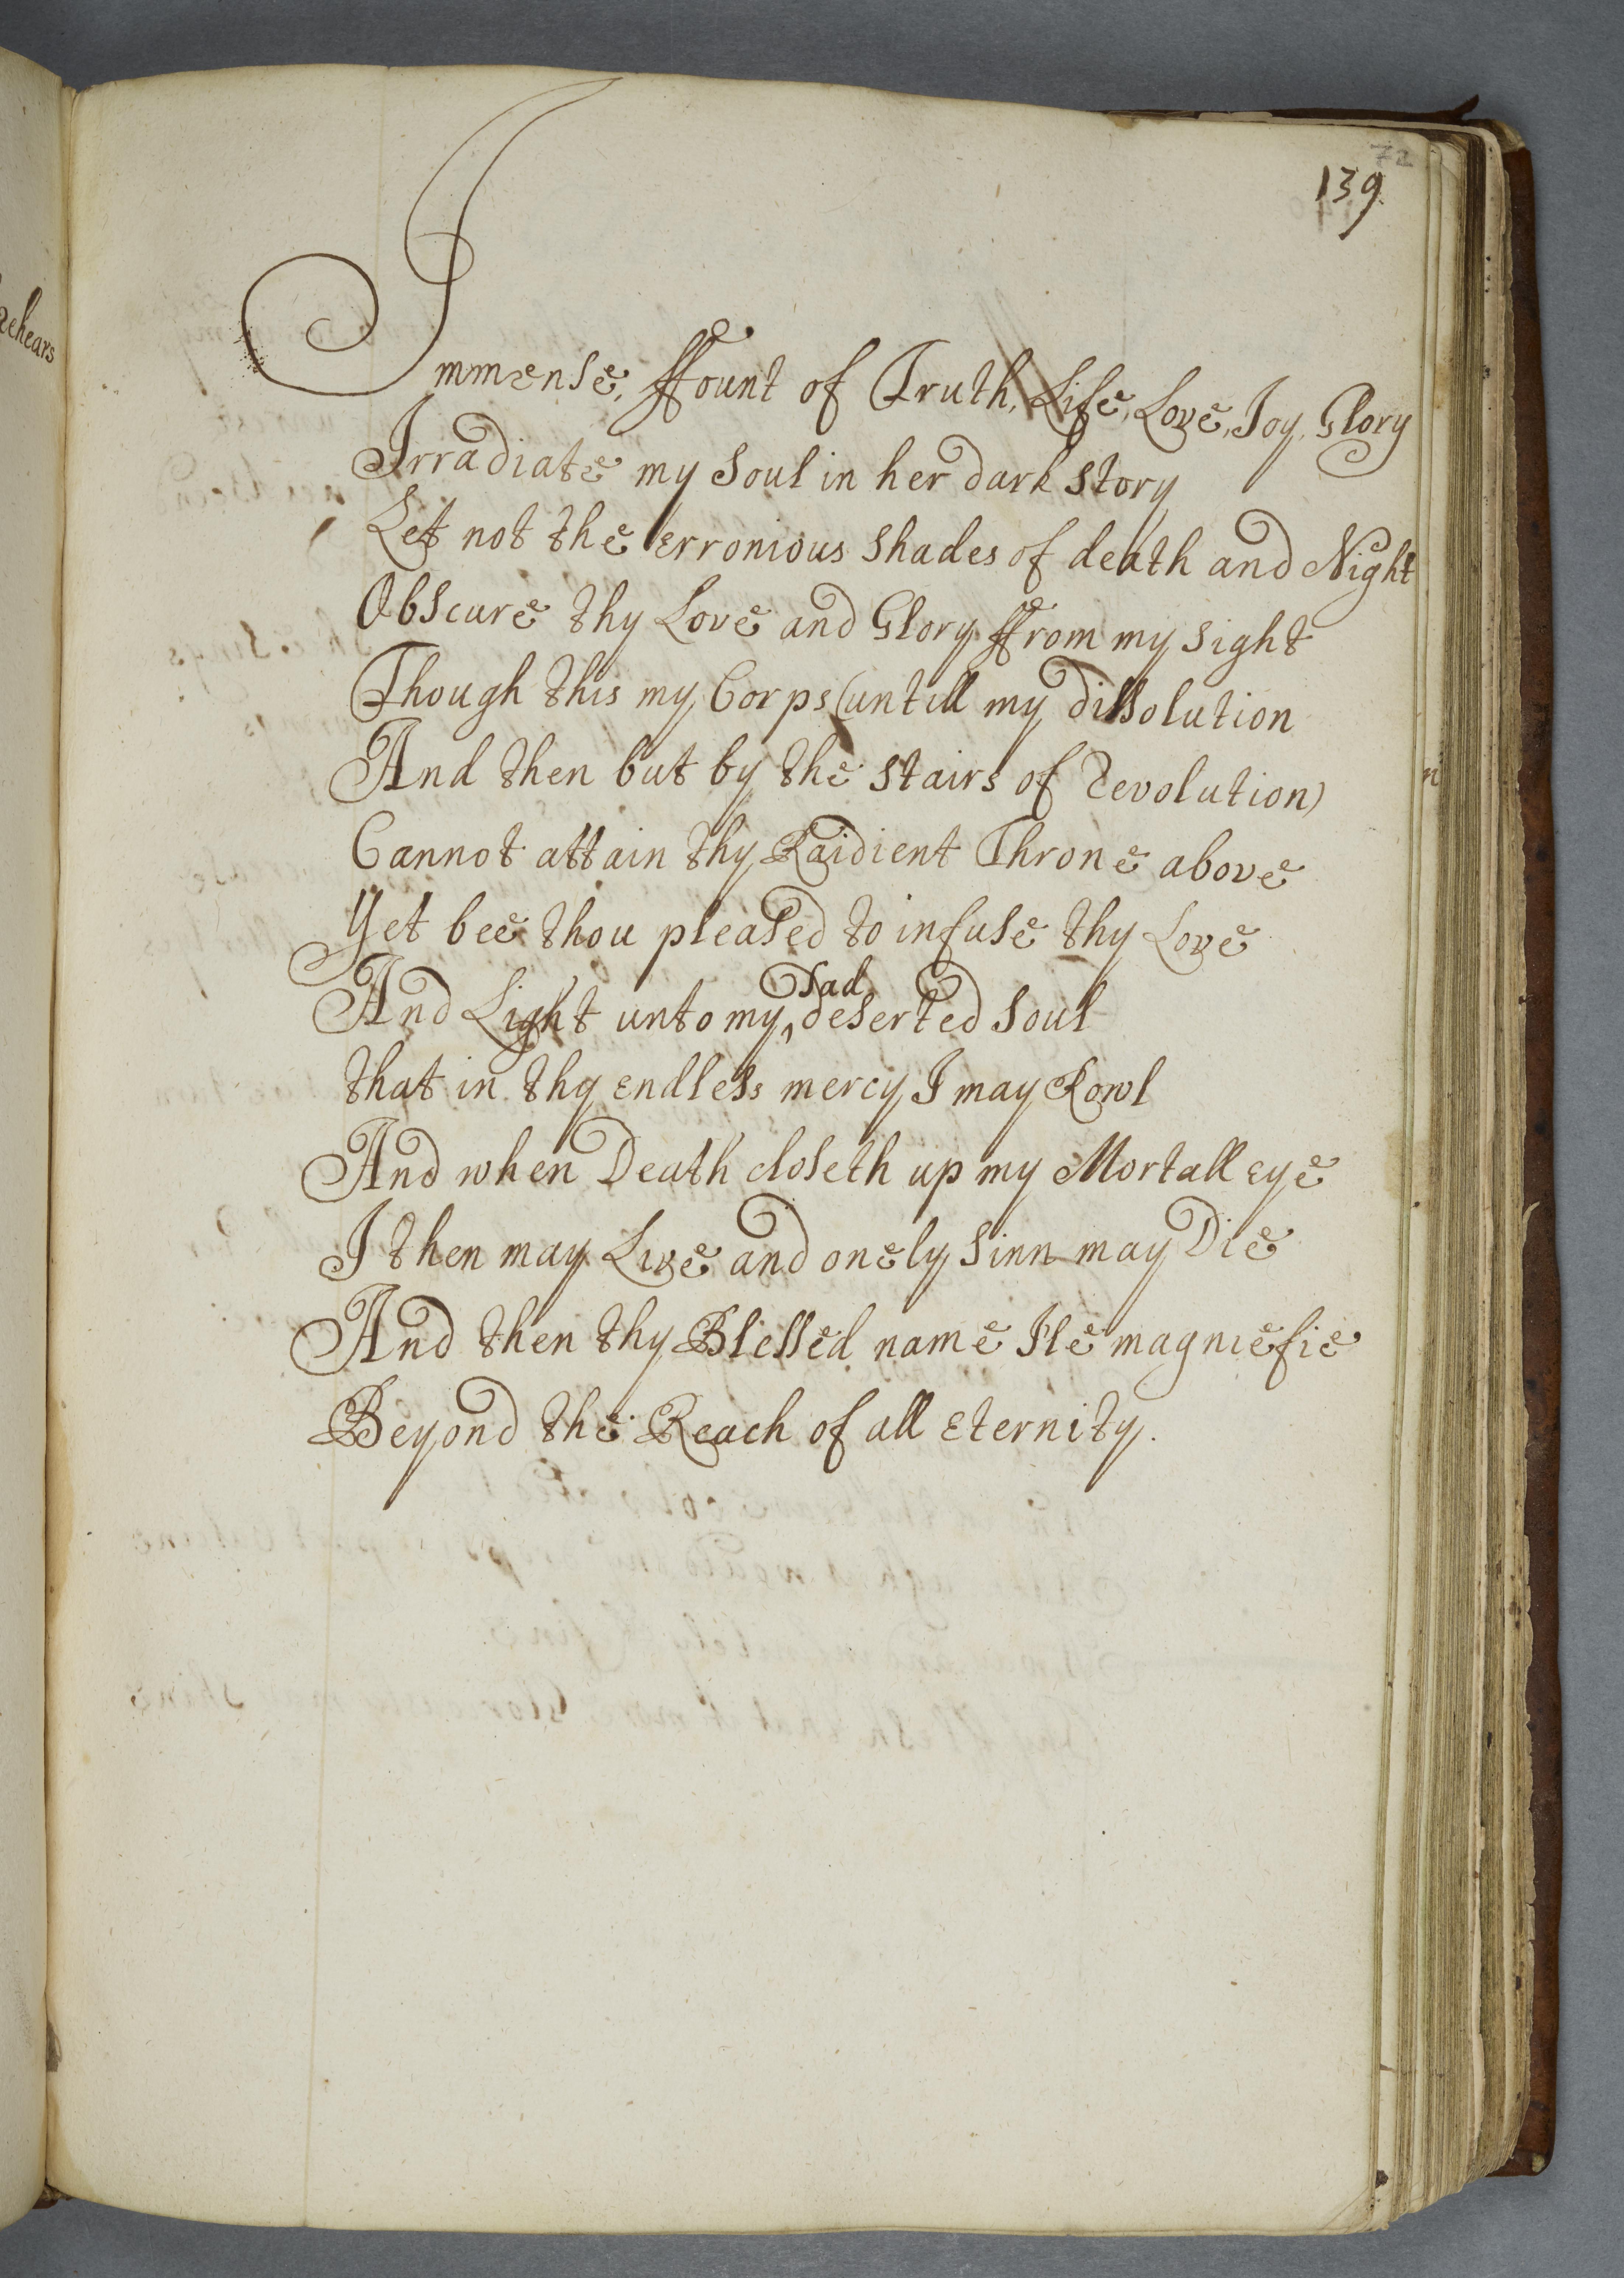 72
139
Immense, ffount of Truth, Life, Love, Joy, Glory
Irradiate my Soul in her dark story
Let not the erronious shades of death and Night
Obscure thy Love and Glory ffrom my sight
Though this my Corps (untill my dissolution
And then but by the stairs of Revolution)
Cannot attain thy Raidient Throne above
Yet bee thou pleased to infuse thy Love
And Light unto my ^ sad deserted soul
that in thy endless mercy I may Rowl
And when Death closeth up my Mortall eye
I then may Live and onely Sinn may Die
And then thy Blessed name I'le magniefie
Beyond the Reach of all Eternity.